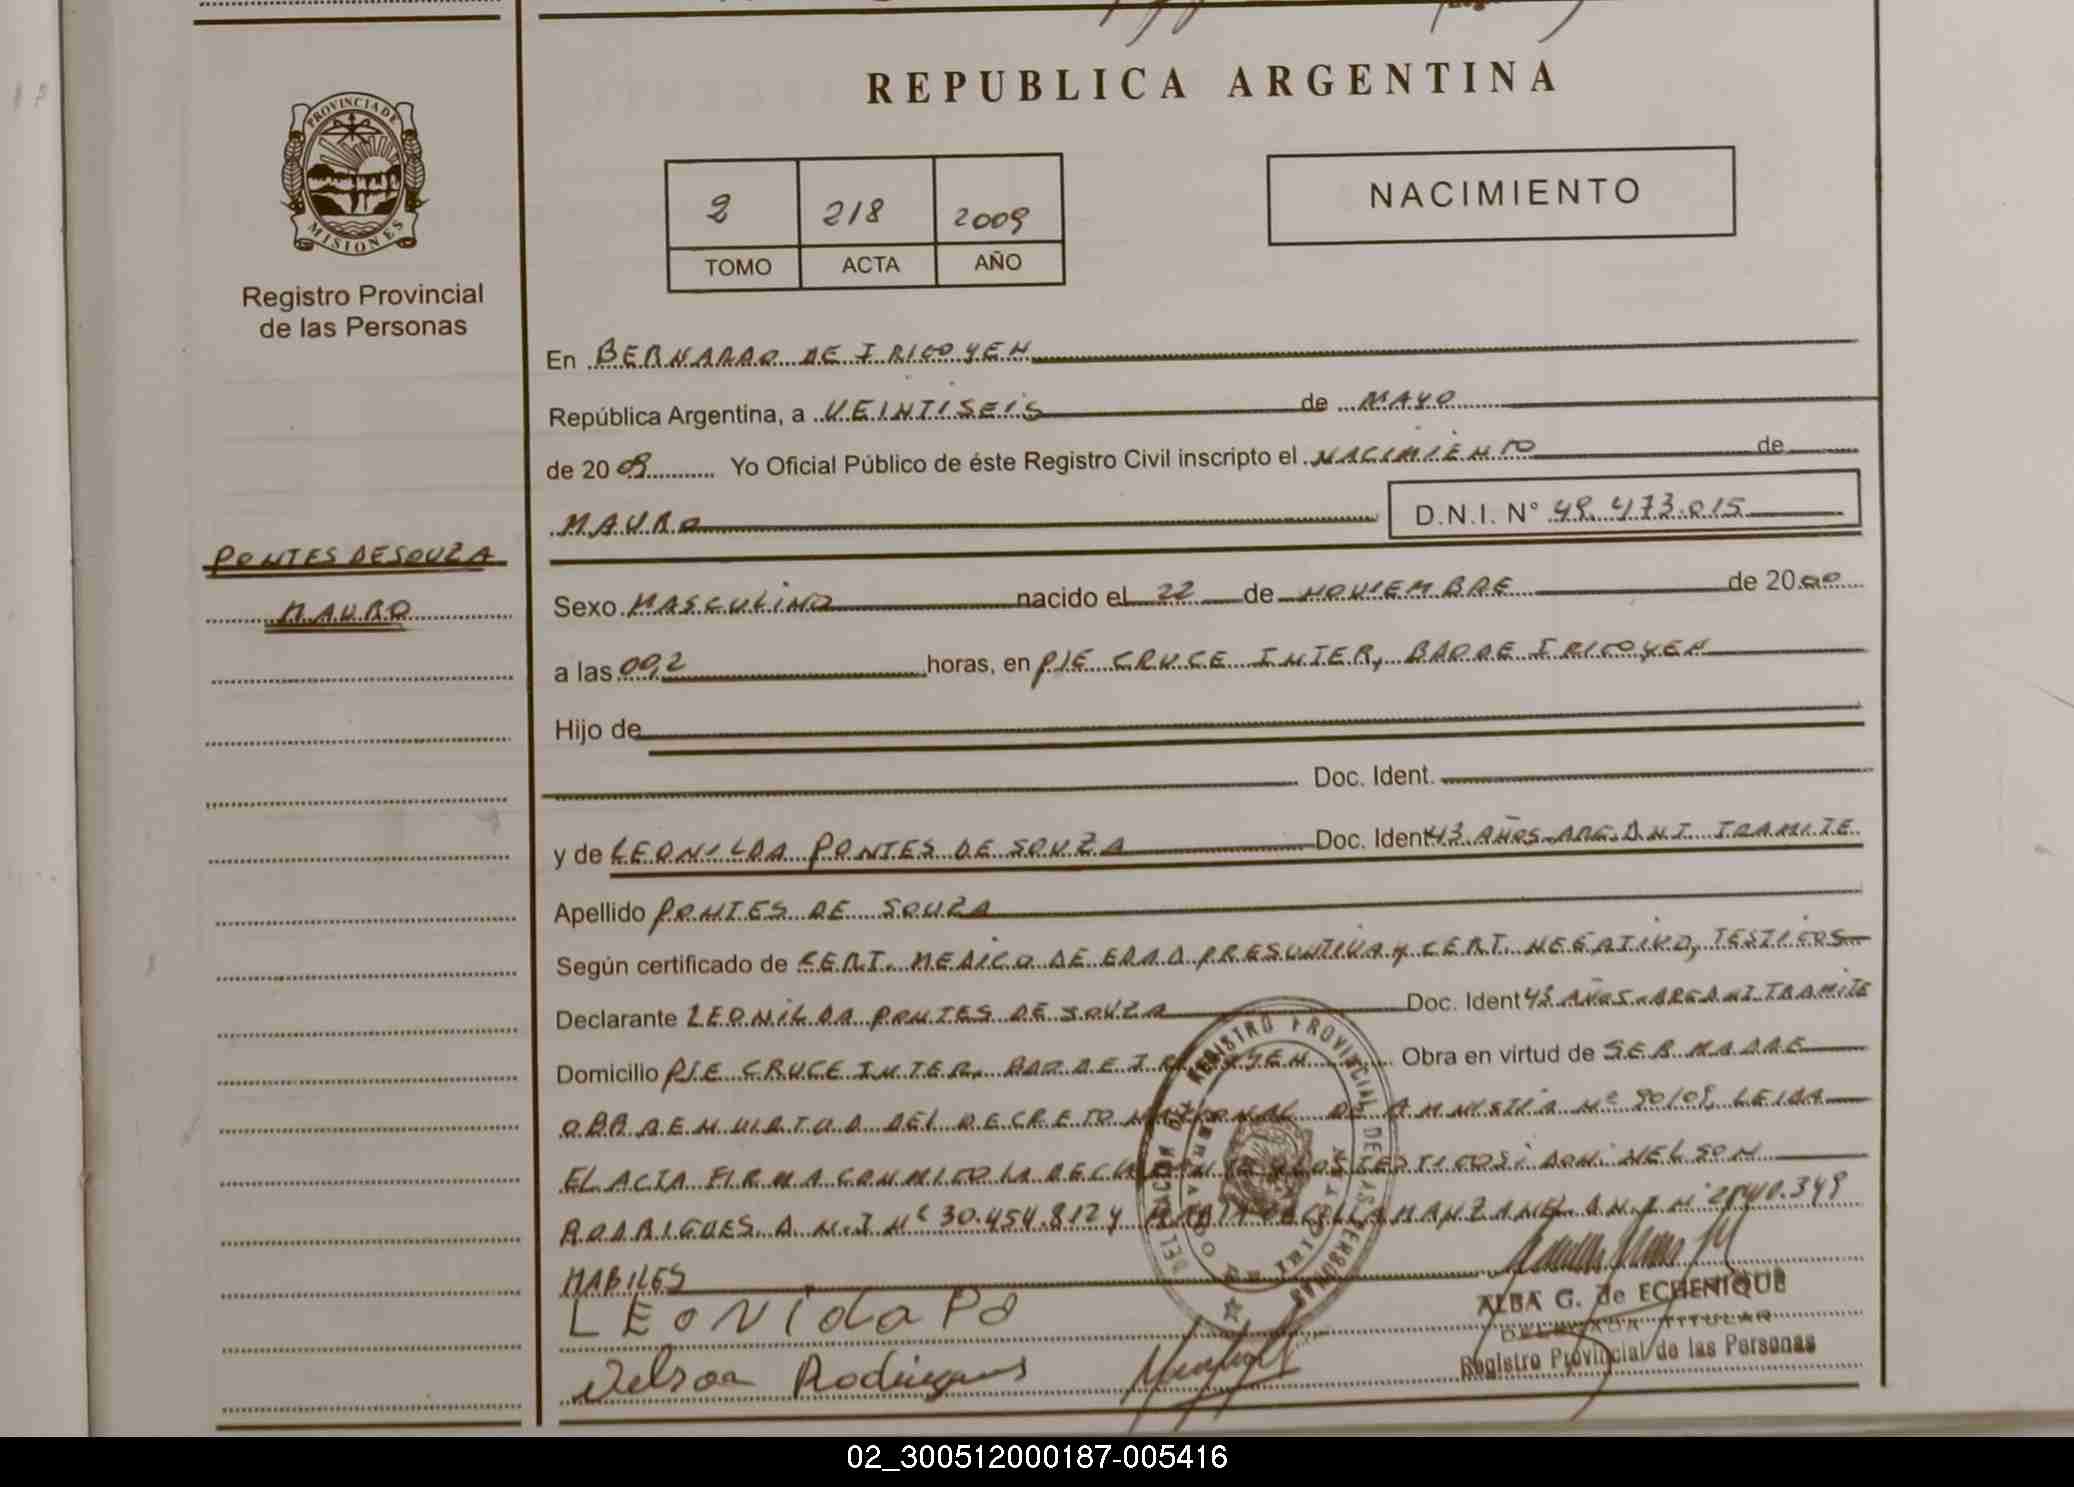 REPUBLICA ARGENTINA
PROVINCIA DE MISIONES
Registro Provincial
de las Personas
2 218 2009
TOMO ACTA AÑO
NACIMIENTO
En BERNARDO DE IRIGOYEN
República Argentina, a VEINTISEIS de MAYO
de 2009 Yo Oficial Público de éste Registro Civil inscripto el NACIMIENTO de
MAURO D.N.I. N° 49.473.015
PONTES DE SOUZA
MAURO
Sexo MASCULINO nacido el 22 de NOVIEMBRE de 20
a las horas, en PJE CRUCE INTER, BDO DE IRIGOYEN
Hijo de
Doc. Ident.
y de LEONILDA PONTES DE SOUZA Doc. Ident 43 AÑOS-ARG. DNI TRAMITE
Apellido PONTES DE SOUZA
Según certificado de CERT. MEDICO DE EDAD PRESUNTIVA Y CERT. NEGATIVO, TESTIGOS
Declarante LEONILDA PONTES DE SOUZA Doc. Ident 43 AÑOS-ARG DNI TRAMITE
Domicilio PJE CRUCE INTER. BDO DE IRIGOYEN Obra en virtud de SER MADRE
OBRA EN VIRTUD DEL DECRETO NACIONAL DE AMNISTIA Nº 90/09, LEIDA
EL ACTA FIRMA CONMIGO LA DECLARANTE Y LOS TESTIGOS: DON: NELSON
RODRIGUES D.N.I Nº 30.454.812 Y MANZANEL D.N.I Nº
HABILES
LEONIdA PO
Nelson Rodrigues
REGISTRO PROVINCIAL DE LAS PERSONAS
ALBA G. de ECHENIQUE
DELEGADA TITULAR
Registro Provincial de las Personas
02_300512000187-005416